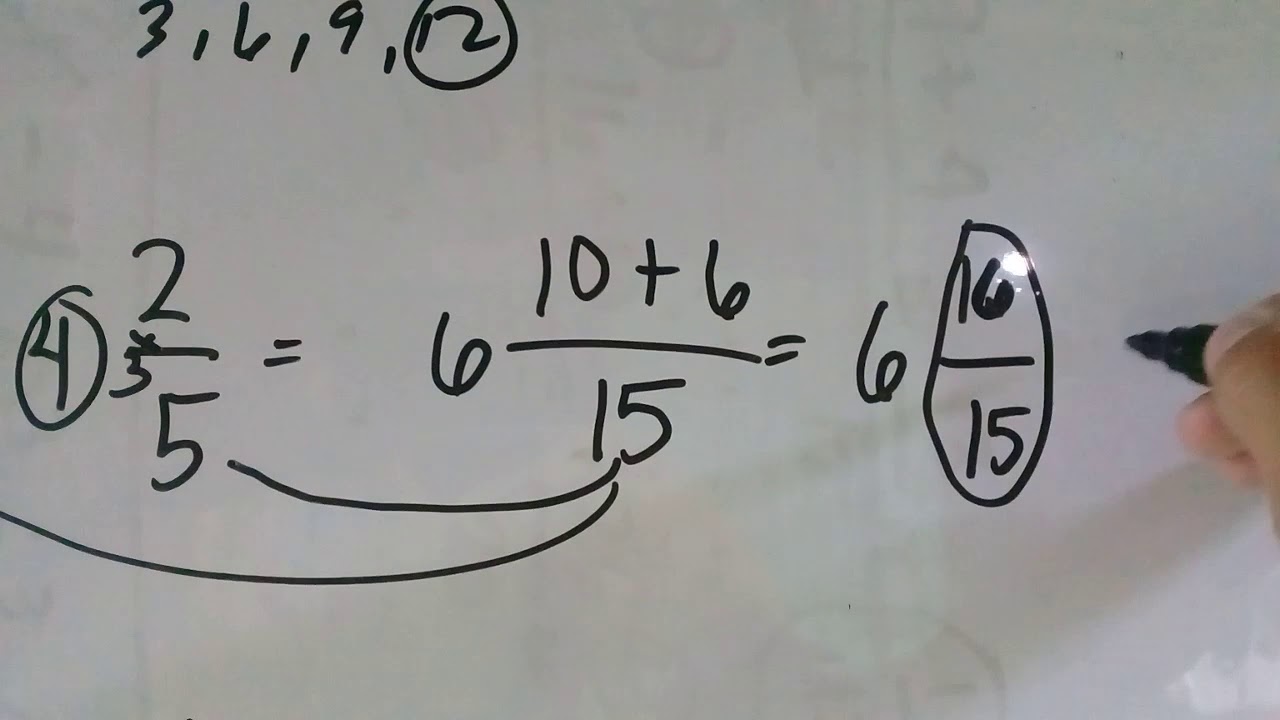 3, 6, 9, 12
4 2/5 = 6 10+6/15 = 6 16/15
×3